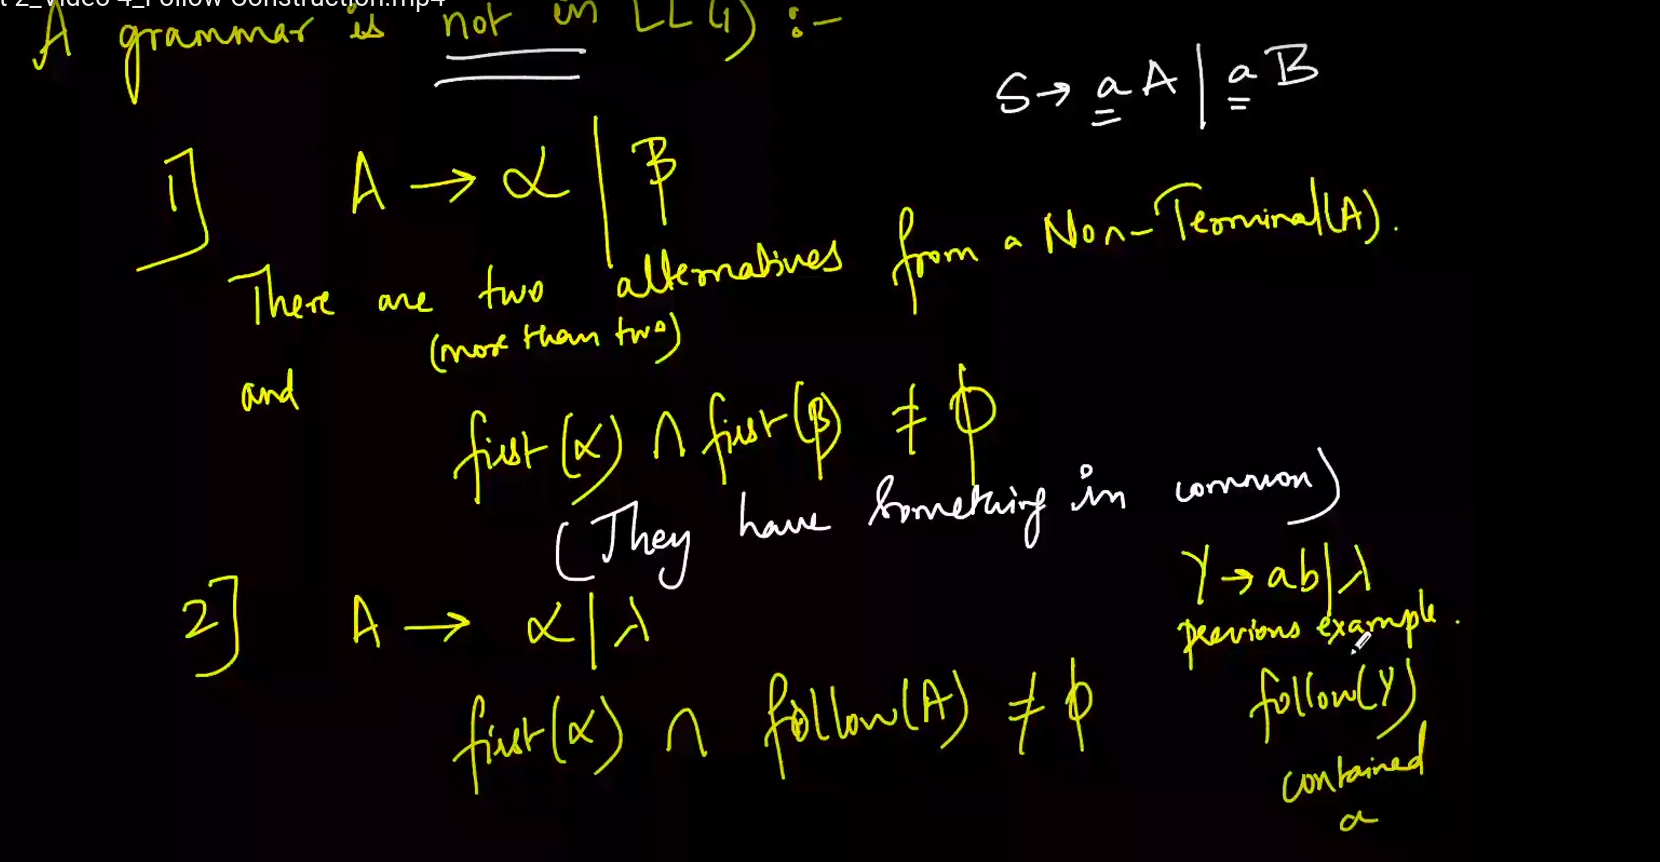 t 2_Video 4_Follow Construction.mp4
A grammar is not in LL(1) :-
S → a A | a B
1] A → α | β
There are two alternatives from a Non-Terminal(A).
(more than two)
and
first(α) ∩ first(β) ≠ ϕ
(They have something in common)
Y → ab | λ
previous example.
2] A → α | λ
first(α) ∩ follow(A) ≠ ϕ
follow(Y)
contained
a